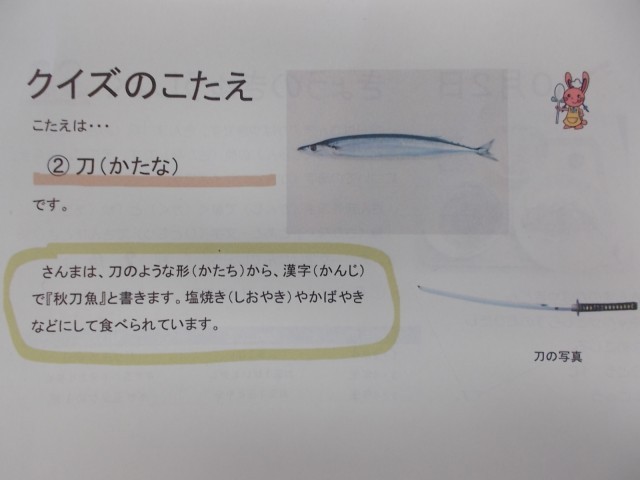 クイズのこたえ
こたえは・・・
②刀(かたな)
です。
さんまは、刀のような形(かたち)から、漢字(かんじ)
で『秋刀魚』と書きます。塩焼き(しおやき)やかばやき
などにして食べられています。
刀の写真